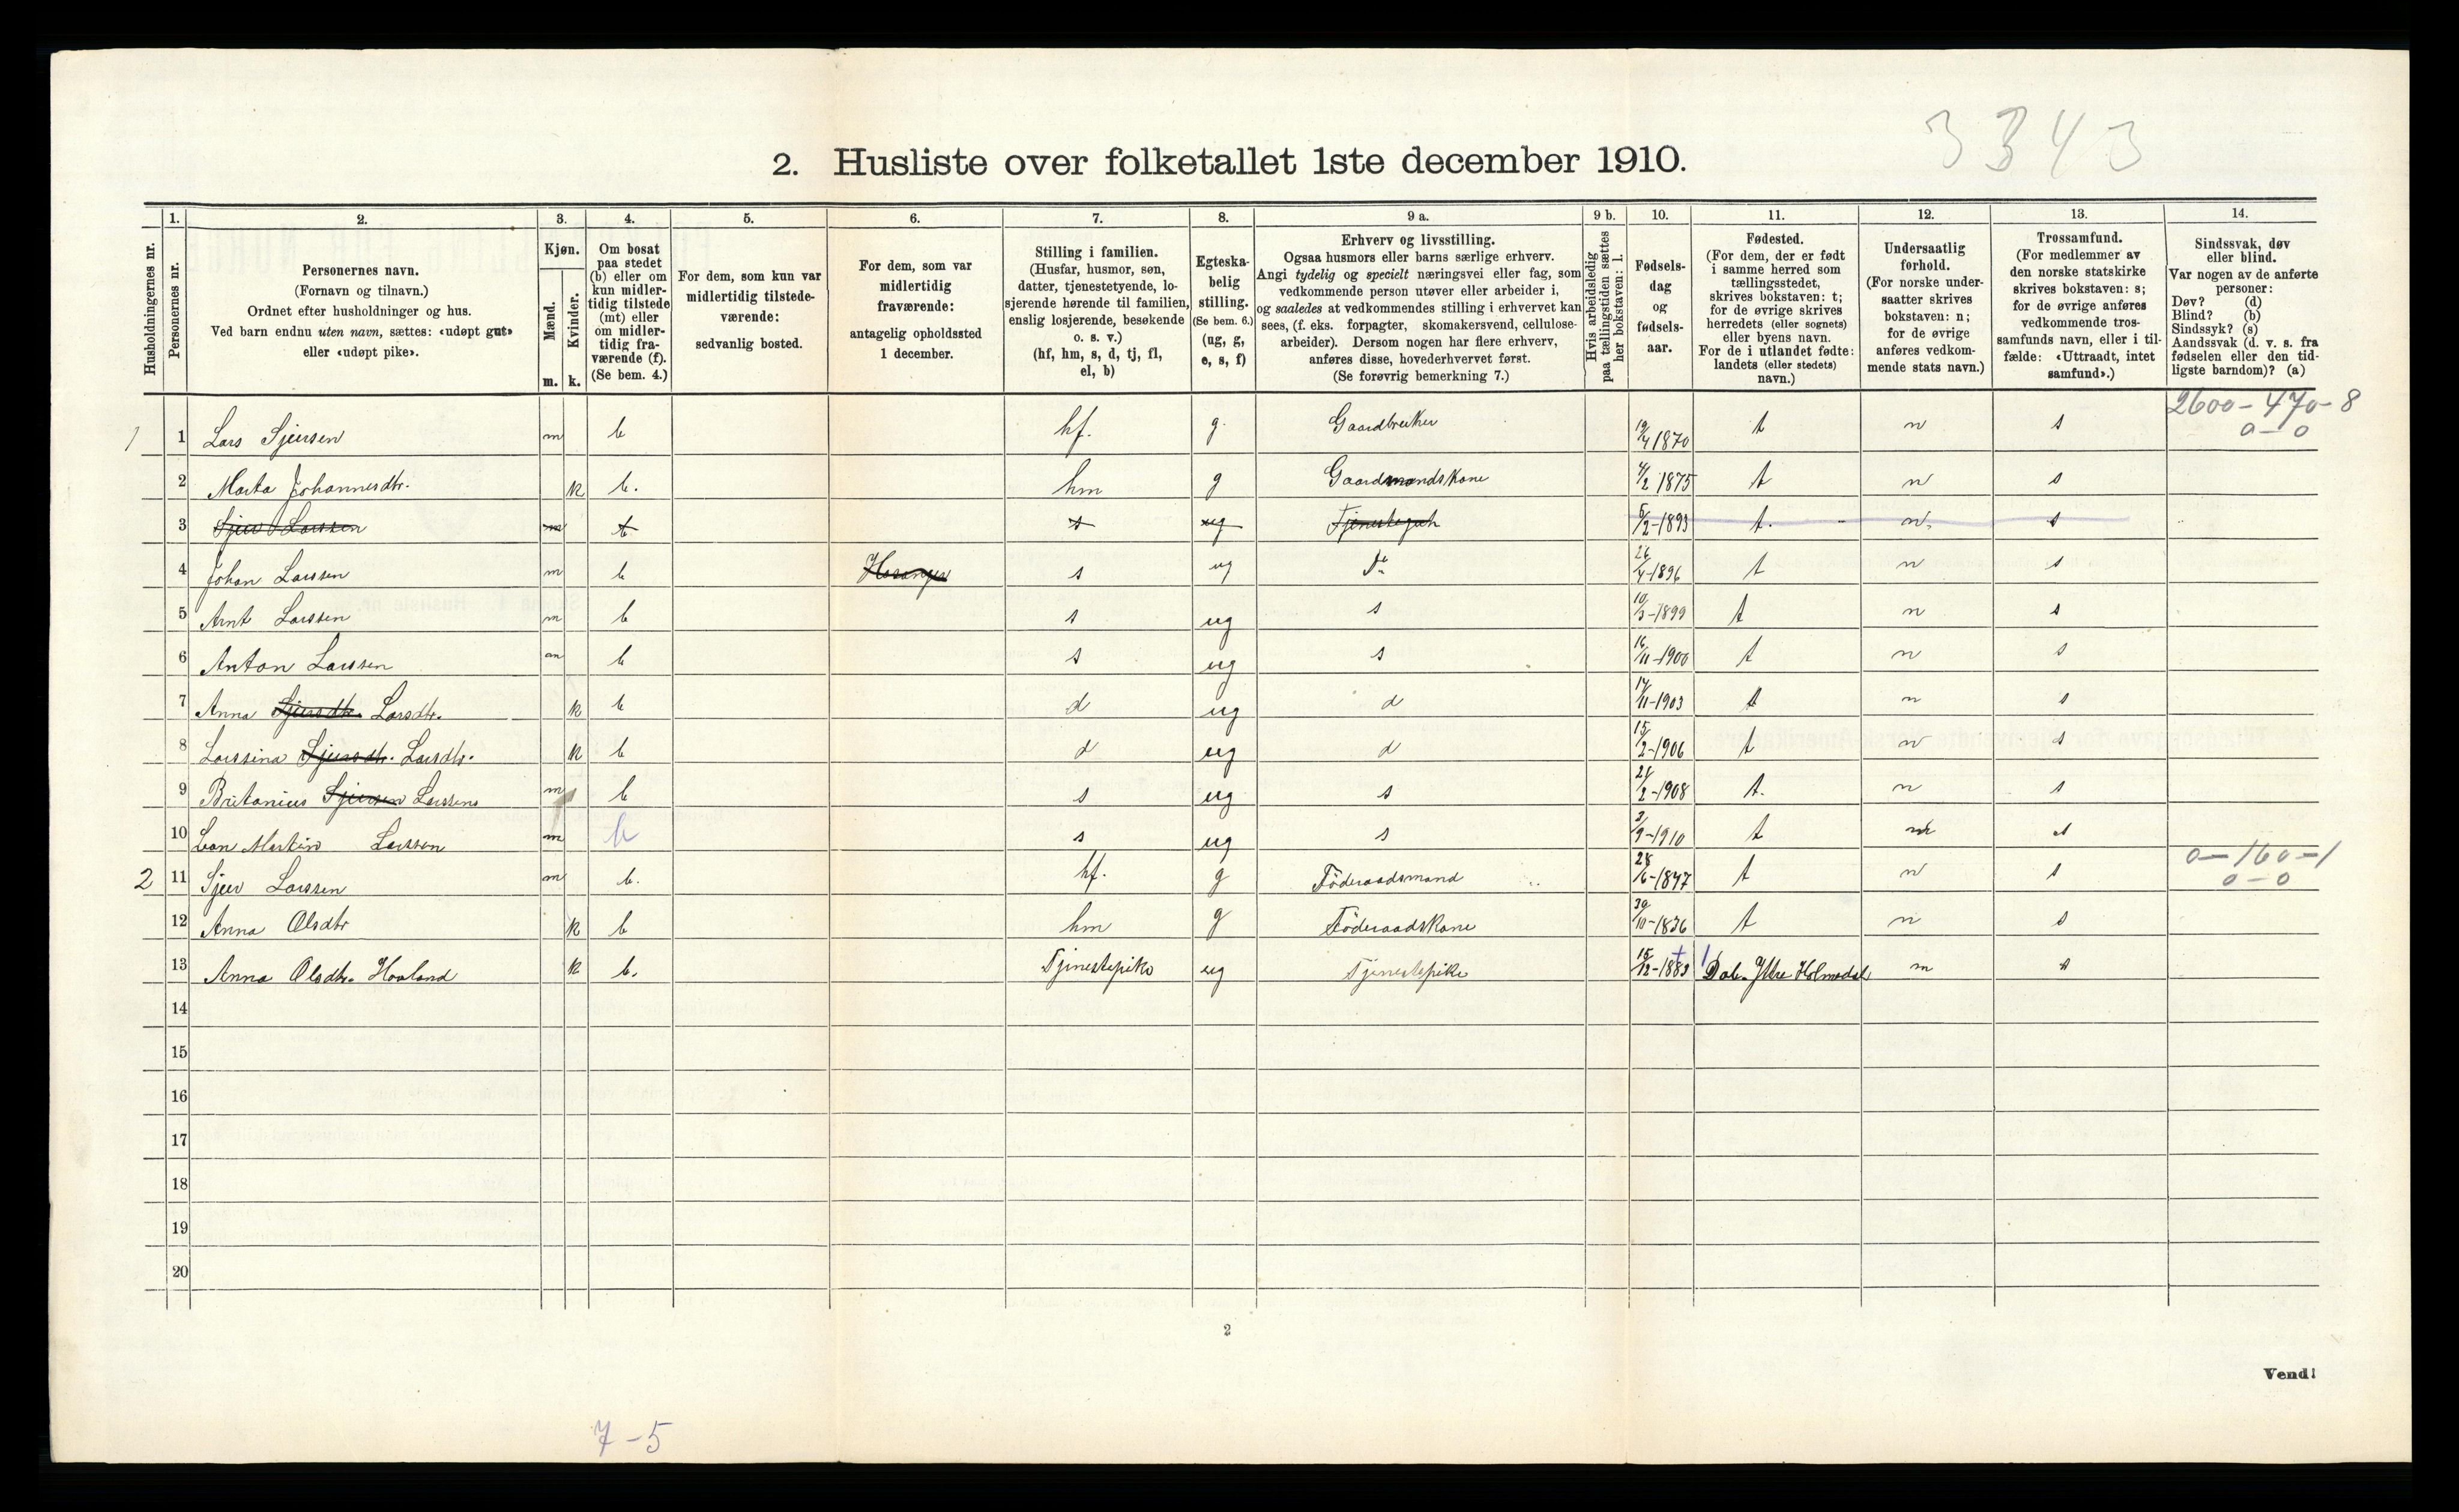 3343
2. Husliste over folketallet 1ste december 1910.
1. 2. 3. 4. 5. 6. 7. 8. 9 a. 9 b. 10. 11. 12. 13. 14.
Husholdningernes nr.
Personernes nr.
Personernes navn.
(Fornavn og tilnavn.)
Ordnet efter husholdninger og hus.
Ved barn endnu uten navn, sættes: «udøpt gut»
eller «udøpt pike».
Kjøn.
Mænd.
Kvinder.
m. k.
Om bosat
paa stedet
(b) eller om
kun midler-
tidig tilstede
(mt) eller
om midler-
tidig fra-
værende (f).
(Se bem. 4.)
For dem, som kun var
midlertidig tilstede-
værende:
sedvanlig bosted.
For dem, som var
midlertidig
fraværende:
antagelig opholdssted
1 december.
Stilling i familien.
(Husfar, husmor, søn,
datter, tjenestetyende, lo-
sjerende hørende til familien,
enslig losjerende, besøkende
o. s. v.)
(hf, hm, s, d, tj, fl,
el, b)
Egteska-
belig
stilling.
(Se bem. 6.)
(ug, g,
e, s, f)
Erhverv og livsstilling.
Ogsaa husmors eller barns særlige erhverv.
Angi tydelig og specielt næringsvei eller fag, som
vedkommende person utøver eller arbeider i,
og saaledes at vedkommendes stilling i erhvervet kan
sees, (f. eks. forpagter, skomakersvend, cellulose-
arbeider). Dersom nogen har flere erhverv,
anføres disse, hovederhvervet først.
(Se forøvrig bemerkning 7.)
Hvis arbeidsledig
paa tællingstiden sættes
her bokstaven: l.
Fødsels-
dag
og
fødsels-
aar.
Fødested.
(For dem, der er født
i samme herred som
tællingsstedet,
skrives bokstaven: t;
for de øvrige skrives
herredets (eller sognets)
eller byens navn.
For de i utlandet fødte:
landets (eller stedets)
navn.)
Undersaatlig
forhold.
(For norske under-
saatter skrives
bokstaven: n;
for de øvrige
anføres vedkom-
mende stats navn.)
Trossamfund.
(For medlemmer av
den norske statskirke
skrives bokstaven: s;
for de øvrige anføres
vedkommende tros-
samfunds navn, eller i til-
fælde: «Uttraadt, intet
samfund».)
Sindssvak, døv
eller blind.
Var nogen av de anførte
personer:
Døv? (d)
Blind? (b)
Sindssyk? (s)
Aandssvak (d. v. s. fra
fødselen eller den tid-
ligste barndom)? (a)
1 1 Lars Sjursen m b hf. g. Gaardbruker 19/4 1870 t n s 2600-470-8
0-0
2 Marta Johannesdtr. k b. hm g Gaardmandskone 4/2 1875 t n s
3 Sjur Larssen m t s ug Tjenestegut 6/2-1893 t. n. s
4 Johan Larssen m b s ug 26/4-1896 t n s
5 Arnt Larssen m b s ug s 10/3-1899 t n s
6 Anton Larssen m b s ug s 16/11-1900 t n s
7 Anna Sjursdtr. Larsdtr. k b d ug d 14/11-1903 t n s
8 Larssina Sjursdtr. Larsdtr. k b d ug d 15/2-1906 t n s
9 Britanius Sjursen Larssens m b s ug s 2-1908 t. n s
10 Martin Larssen m b s ug s 3/9-1910 t n s
2 11 Sjur Larssen m b. hf. g Föderaadsmand 28/6-1847 t n s 0-160-1
0-0
12 Anna Olsdtr k b hm g Föderaadskone 30/10-1836 t n s
13 Anna Olsdtr. Hovland k b. Tjenestepike ug Tjenestepike 15/12-1883 Dale Ytre Holmedal n s
14
15
16
17
18
19
20
2
Vend!
7-5